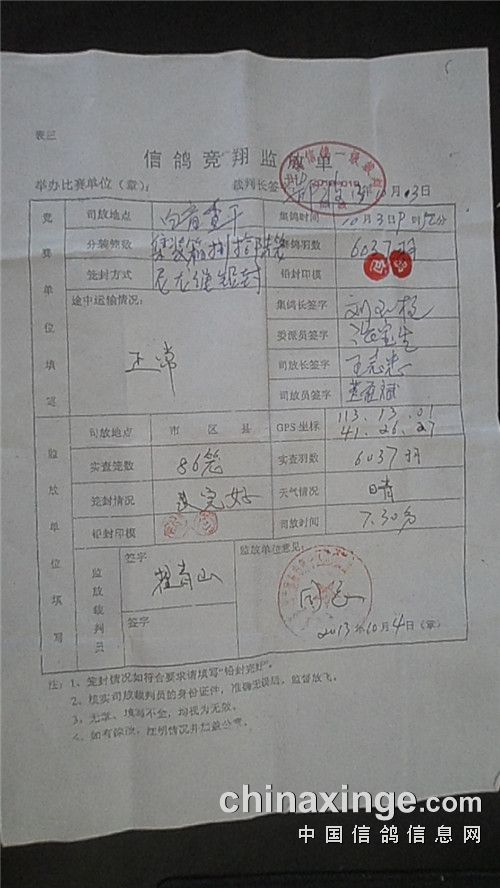 表三
信鸽竞翔监放单
举办比赛单位（章）： 裁判长签 13年10月03日
竞赛单位填写
司放地点 白音查干 集鸽时间 10月3日
分装笼数 集鸽羽数 6037羽
笼封方式 铅封印模
途中运输情况： 正常
集鸽长签字
委派员签字
司放长签字 王志忠
司放员签字
监放单位填写
司放地点 市 区 县 GPS坐标 113.13.01 41.26.27
实查笼数 86笼 实查羽数 6037羽
笼封情况 完好 天气情况 晴
铅封印模 司放时间 7.30分
监放裁判员
签字 翟青山
签字
监放单位意见： 同意
2013年10月4日（章）
注：1、笼封情况如符合要求请填写“铅封完好”。
2、核实司放裁判员的身份证件，准确无误后，监督放飞。
3、无章、填写不全，均视为无效。
4、如有涂改，注明情况并加盖公章。
chinaxinge.com
中国信鸽信息网